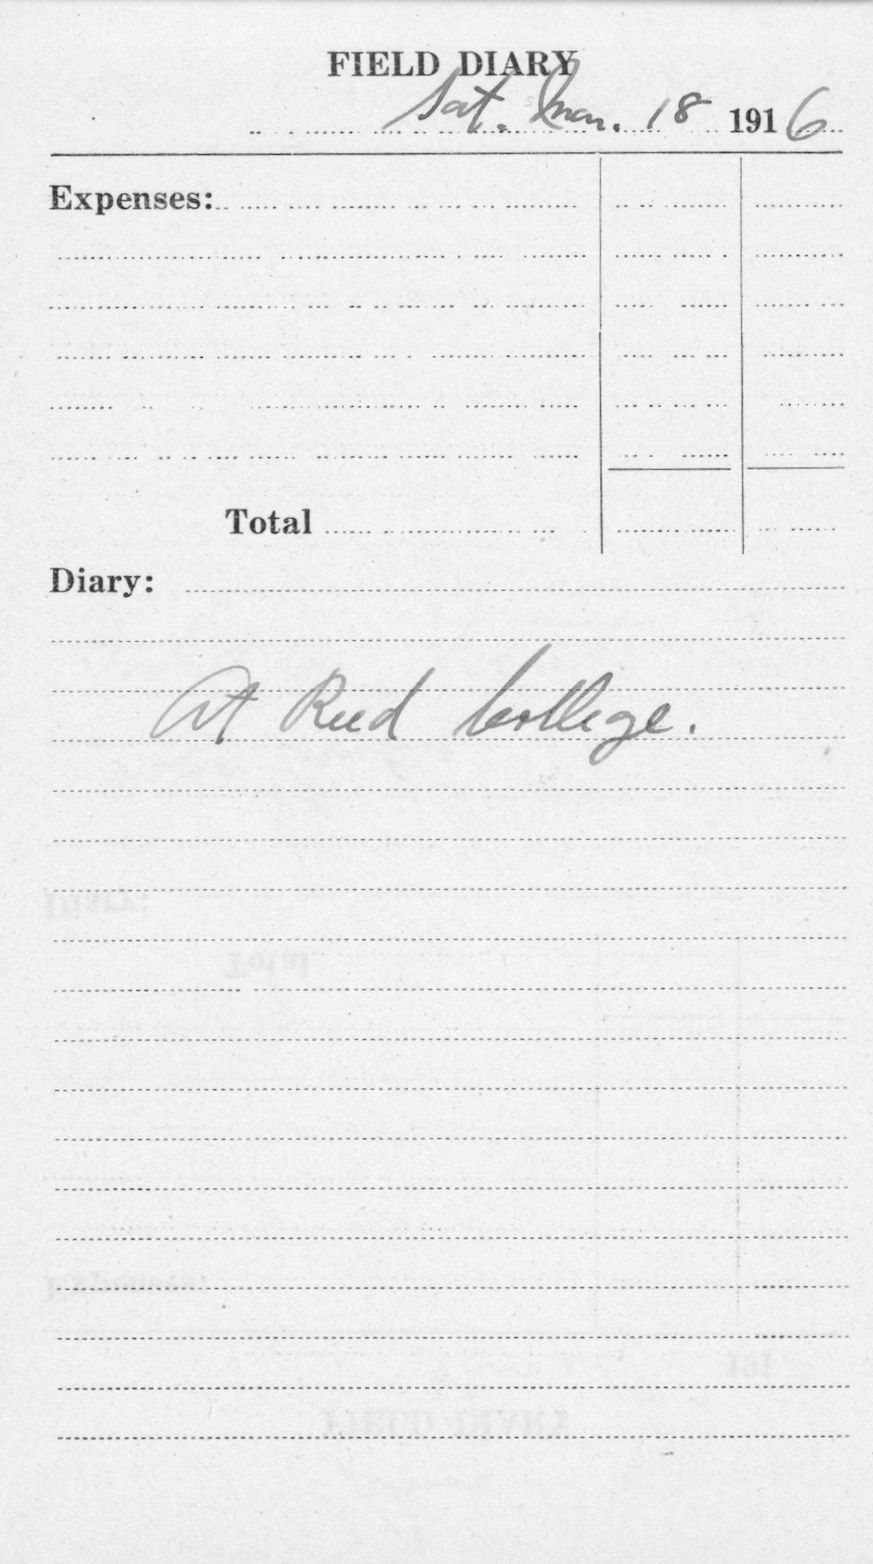 FIELD DIARY
Sat. Mar. 18 1916
Expenses:
Total
Diary:
At Reed College.